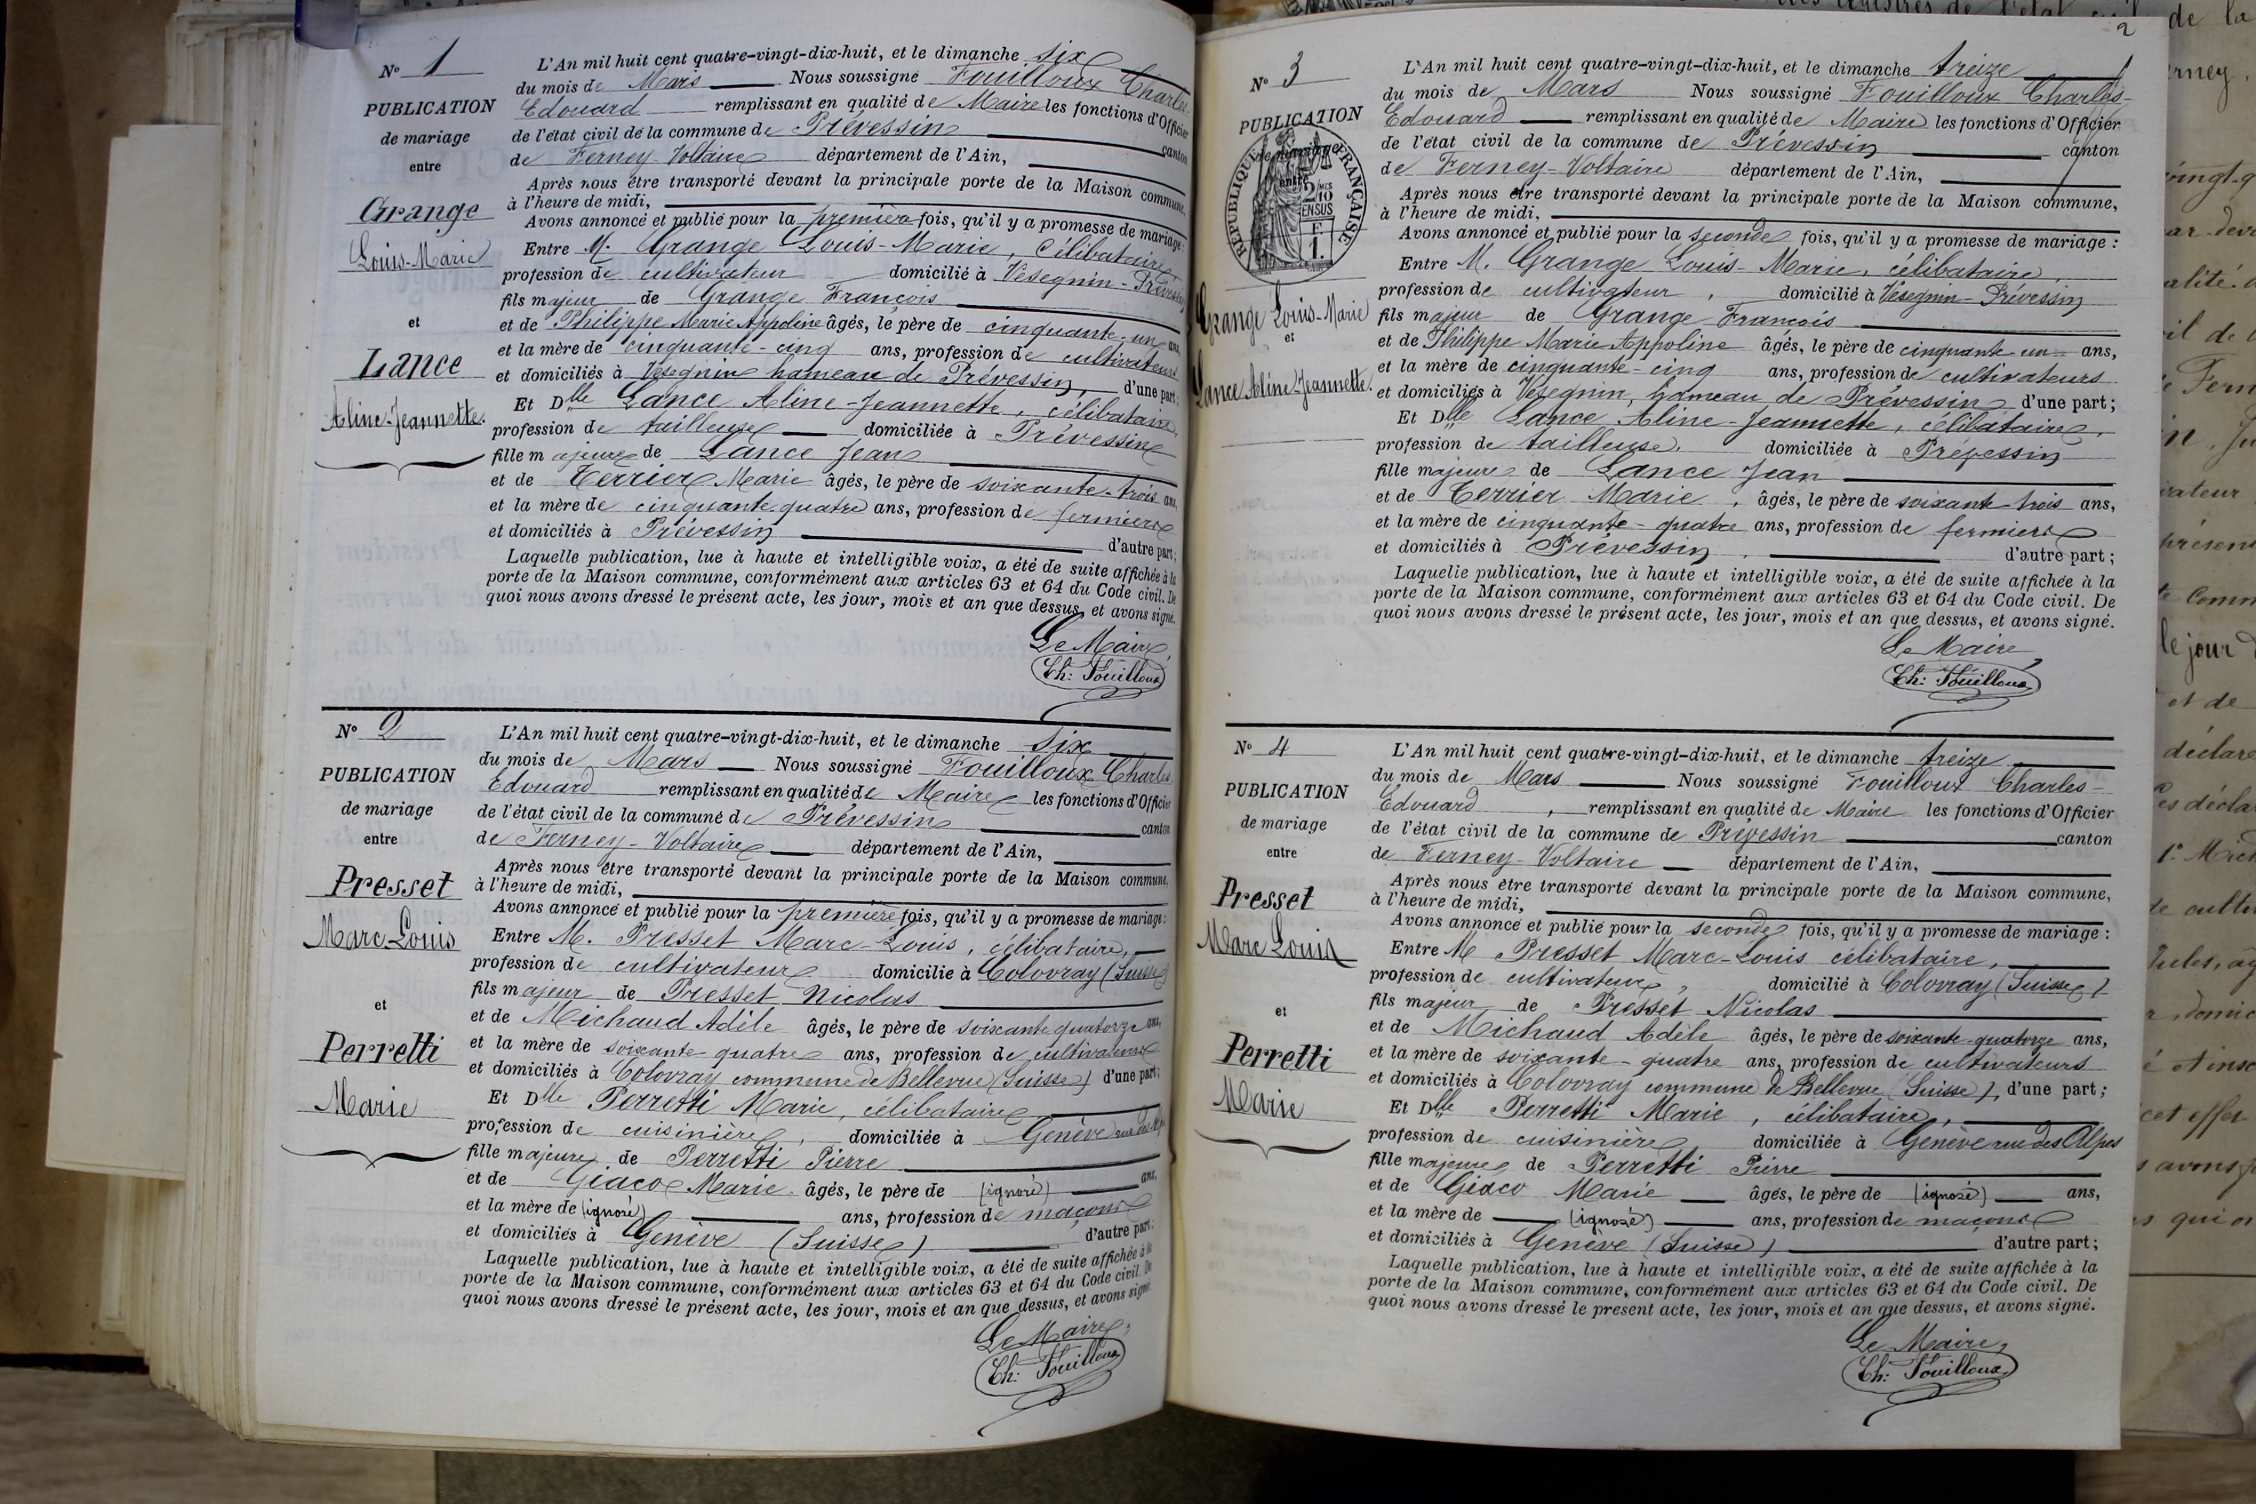 No 1
PUBLICATION
de mariage
entre
Grange
Louis-Marie
et
Lance
Aline-Jeannette.
L'An mil huit cent quatre-vingt-dix-huit, et le dimanche six
du mois de Mars Nous soussigné Fouilloux Charles
Edouard remplissant en qualité de Maire les fonctions d'Officier
de l'état civil de la commune de Prévessin canton
de Ferney-Voltaire département de l'Ain,
Après nous être transporté devant la principale porte de la Maison commune,
à l'heure de midi,
Avons annoncé et publié pour la première fois, qu'il y a promesse de mariage :
Entre M. Grange Louis-Marie, célibataire,
profession de cultivateur domicilié à Vésegnin-Prévessin
fils majeur de Grange François
et de Philippe Marie Appoline âgés, le père de cinquante-un ans,
et la mère de cinquante-cinq ans, profession de cultivateurs
et domiciliés à Vésegnin hameau de Prévessin, d'une part ;
Et Dlle Lance Aline-Jeannette, célibataire,
profession de tailleuse domiciliée à Prévessin
fille majeure de Lance Jean
et de Terrier Marie âgés, le père de soixante-trois ans,
et la mère de cinquante-quatre ans, profession de fermiers
et domiciliés à Prévessin d'autre part ;
Laquelle publication, lue à haute et intelligible voix, a été de suite affichée à la
porte de la Maison commune, conformément aux articles 63 et 64 du Code civil. De
quoi nous avons dressé le présent acte, les jour, mois et an que dessus, et avons signé.
Le Maire,
Ch: Fouilloux
No 2
PUBLICATION
de mariage
entre
Presset
Marc-Louis
et
Perretti
Marie
L'An mil huit cent quatre-vingt-dix-huit, et le dimanche six
du mois de Mars Nous soussigné Fouilloux Charles
Edouard remplissant en qualité de Maire les fonctions d'Officier
de l'état civil de la commune de Prévessin canton
de Ferney-Voltaire département de l'Ain,
Après nous être transporté devant la principale porte de la Maison commune,
à l'heure de midi,
Avons annoncé et publié pour la première fois, qu'il y a promesse de mariage :
Entre M. Presset Marc-Louis, célibataire,
profession de cultivateur domicilié à Colovray (Suisse)
fils majeur de Presset Nicolas
et de Michaud Adèle âgés, le père de soixante quatorze ans,
et la mère de soixante quatre ans, profession de cultivateurs
et domiciliés à Colovray commune de Bellevue (Suisse) d'une part ;
Et Dlle Perretti Marie, célibataire
profession de cuisinière, domiciliée à Genève rue des Alpes
fille majeure de Perretti Pierre
et de Giaco Marie âgés, le père de (ignoré) ans,
et la mère de (ignoré) ans, profession de maçons
et domiciliés à Genève (Suisse) d'autre part ;
Laquelle publication, lue à haute et intelligible voix, a été de suite affichée à la
porte de la Maison commune, conformément aux articles 63 et 64 du Code civil. De
quoi nous avons dressé le présent acte, les jour, mois et an que dessus, et avons signé.
Le Maire,
Ch: Fouilloux
2
No 3
PUBLICATION
de mariage
entre
RÉPUBLIQUE FRANÇAISE
2/10 EN SUS
F.
1.
Grange Louis-Marie
et
Lance Aline-Jeannette.
L'An mil huit cent quatre-vingt-dix-huit, et le dimanche treize
du mois de Mars Nous soussigné Fouilloux Charles-
Edouard remplissant en qualité de Maire les fonctions d'Officier
de l'état civil de la commune de Prévessin canton
de Ferney-Voltaire département de l'Ain,
Après nous être transporté devant la principale porte de la Maison commune,
à l'heure de midi,
Avons annoncé et publié pour la seconde fois, qu'il y a promesse de mariage :
Entre M. Grange Louis-Marie, célibataire,
profession de cultivateur, domicilié à Vésegnin-Prévessin
fils majeur de Grange François
et de Philippe Marie Appoline âgés, le père de cinquante un ans,
et la mère de cinquante-cinq ans, profession de cultivateurs
et domiciliés à Vésegnin, hameau de Prévessin d'une part ;
Et Dlle Lance Aline-Jeannette, célibataire,
profession de tailleuse, domiciliée à Prévessin
fille majeure de Lance Jean
et de Terrier Marie, âgés, le père de soixante trois ans,
et la mère de cinquante-quatre ans, profession de fermiers
et domiciliés à Prévessin, d'autre part ;
Laquelle publication, lue à haute et intelligible voix, a été de suite affichée à la
porte de la Maison commune, conformément aux articles 63 et 64 du Code civil. De
quoi nous avons dressé le présent acte, les jour, mois et an que dessus, et avons signé.
Le Maire,
Ch: Fouilloux
No 4
PUBLICATION
de mariage
entre
Presset
Marc Louis
et
Perretti
Marie
L'An mil huit cent quatre-vingt-dix-huit, et le dimanche treize
du mois de Mars Nous soussigné Fouilloux Charles-
Edouard, remplissant en qualité de Maire les fonctions d'Officier
de l'état civil de la commune de Prévessin canton
de Ferney-Voltaire département de l'Ain,
Après nous être transporté devant la principale porte de la Maison commune,
à l'heure de midi,
Avons annoncé et publié pour la seconde fois, qu'il y a promesse de mariage :
Entre M Presset Marc-Louis célibataire,
profession de cultivateur, domicilié à Colovray (Suisse)
fils majeur de Presset Nicolas
et de Michaud Adèle âgés, le père de soixante-quatorze ans,
et la mère de soixante-quatre ans, profession de cultivateurs
et domiciliés à Colovray commune de Bellevue (Suisse), d'une part ;
Et Dlle Perretti Marie, célibataire,
profession de cuisinière, domiciliée à Genève rue des Alpes
fille majeure de Perretti Pierre
et de Giaco Marie âgés, le père de (ignoré) ans,
et la mère de (ignoré) ans, profession de maçons
et domiciliés à Genève (Suisse) d'autre part ;
Laquelle publication, lue à haute et intelligible voix, a été de suite affichée à la
porte de la Maison commune, conformément aux articles 63 et 64 du Code civil. De
quoi nous avons dressé le présent acte, les jour, mois et an que dessus, et avons signé.
Le Maire,
Ch: Fouilloux